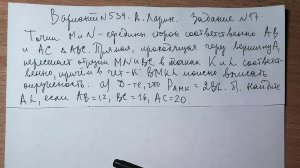 Вариант № 539. А. Ларин. Задание № 17.
Точки M и N - середины сторон соответственно AB
и AC △ ABC. Прямая, проходящая через вершину A,
пересекает отрезки MN и BC в точках K и L соответс-
венно, причём в чет-к BMKL можно вписать
окружность. а) Д-те, что P AMK = 2BL. б) найдите
AL, если AB=12, BC=16, AC=20